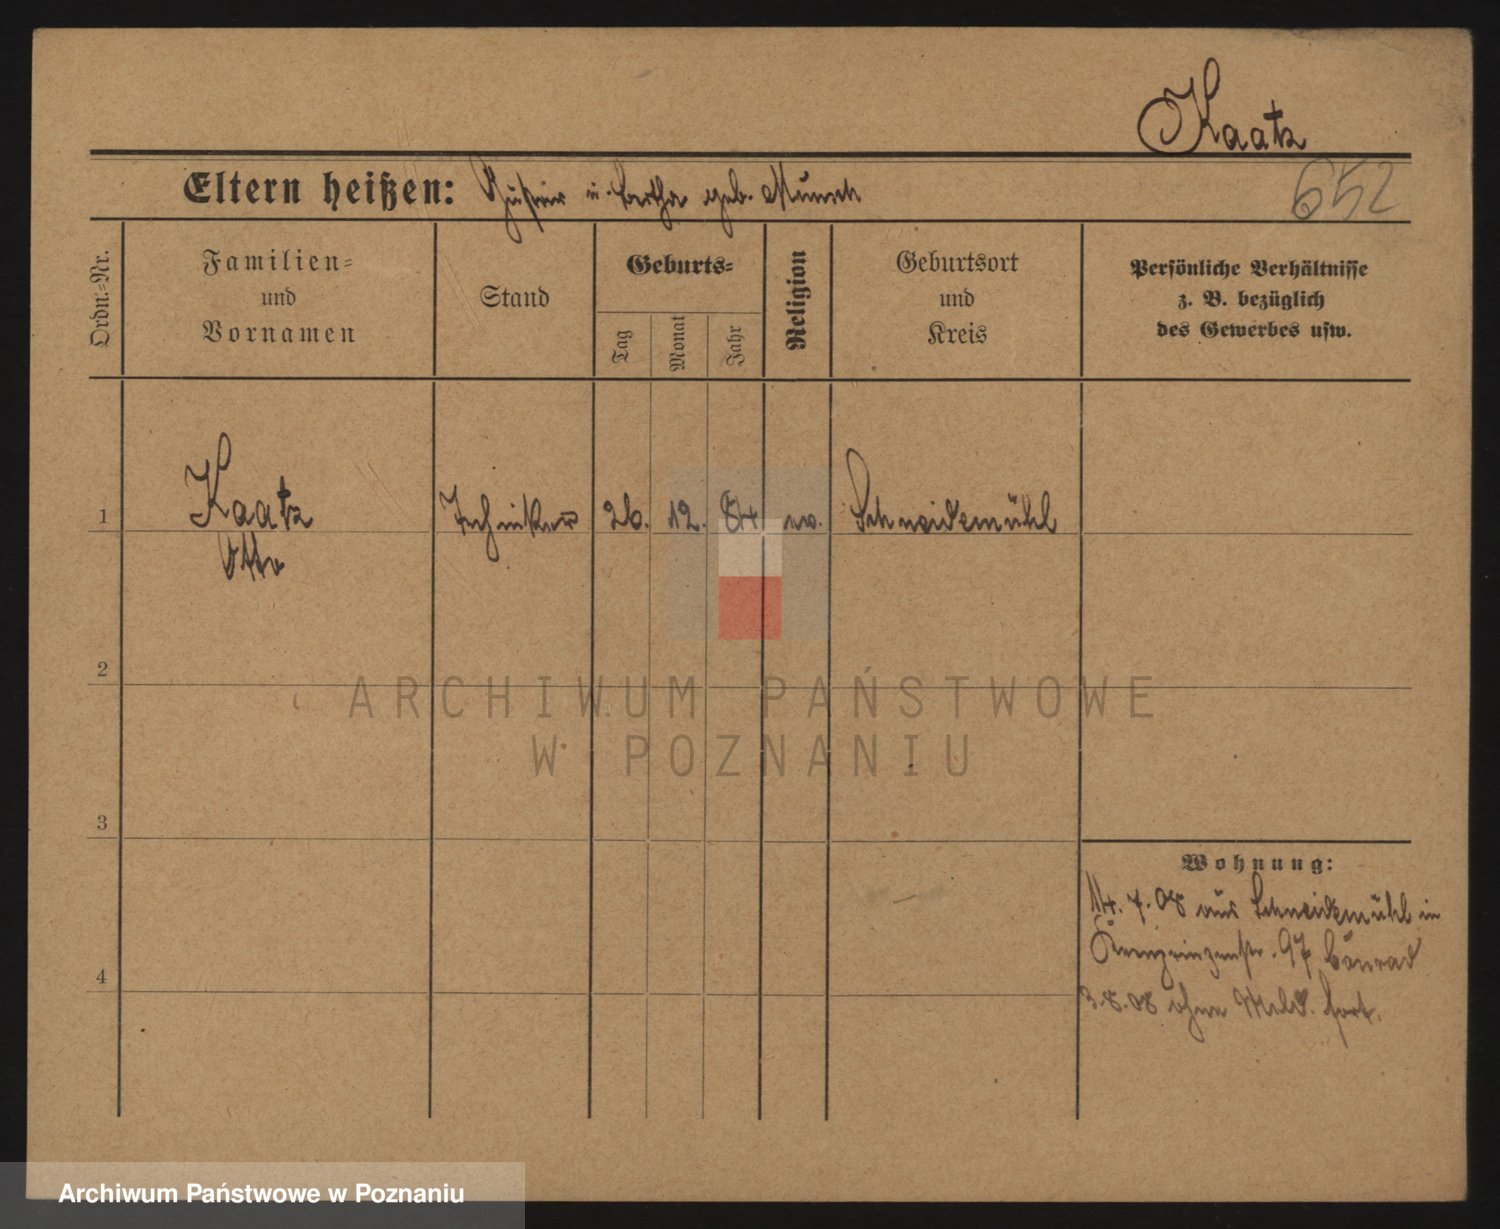 Kaatz
Eltern heißen: Gustav u. Bertha geb. Munck
652
Ordn.-Nr.
Familien-
und
Vornamen
Stand
Geburts-
Tag
Monat
Jahr
Religion
Geburtsort
und
Kreis
Persönliche Verhältnisse
z. B. bezüglich
des Gewerbes usw.
1
Kaatz
Otto
Techniker
26.
12.
84
ev.
Schneidemühl
2
ARCHIWUM PAŃSTWOWE
W POZNANIU
3
Wohnung:
14.7.08 aus Schneidemühl in
Kronprinzenstr. 97
4
3.8.08 ohne Meld. fort.
Archiwum Państwowe w Poznaniu